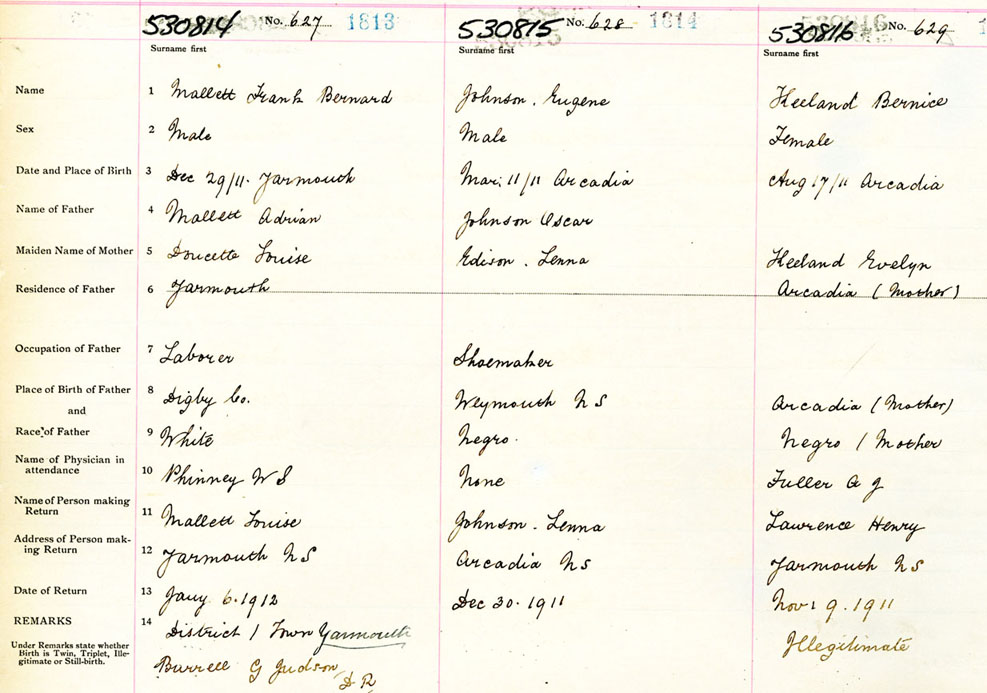 530814 No. 627 1813 530815 No. 628 1814 530816 No. 629
Surname first Surname first Surname first
Name 1 Mallett Frank Bernard Johnson, Eugene Keeland Bernice
Sex 2 Male Male Female
Date and Place of Birth 3 Dec 29/11. Yarmouth Mar; 11/11 Arcadia Aug 17/11 Arcadia
Name of Father 4 Mallett Adrian Johnson Oscar
Maiden Name of Mother 5 Doucette Louise Edison. Lenna Keeland Evelyn
Residence of Father 6 Yarmouth Arcadia (Mother)
Occupation of Father 7 Laborer Shoemaker
Place of Birth of Father 8 Digby Co. Weymouth NS Arcadia (Mother)
and
Race of Father 9 White Negro. Negro (Mother
Name of Physician in
attendance 10 Phinney WS None Fuller A J
Name of Person making
Return 11 Mallett Louise Johnson. Lenna Lawrence Henry
Address of Person mak-
ing Return 12 Yarmouth NS Arcadia NS Yarmouth NS
Date of Return 13 Jany 6. 1912 Dec 30. 1911 Nov 9. 1911
REMARKS 14 District 1 Town Yarmouth Illegitimate
Under Remarks state whether
Birth is Twin, Triplet, Ille-
gitimate or Still-birth.
Burrell G Judson
D R